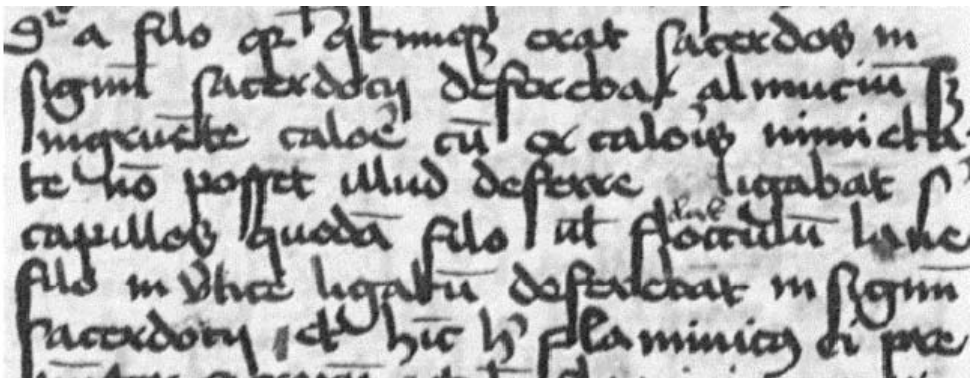 a filo erat sacerdos in
signū sacerdotij deferebat almuciū sʒ
ingruēte caloē cū ex caloīs nimieta
te nō posset illud deferre ligabat s
capillos quodā filo ul flocculū lane
filo in ūtice ligatū deferebat in signū
sacerdotij et hīc h flaminica di